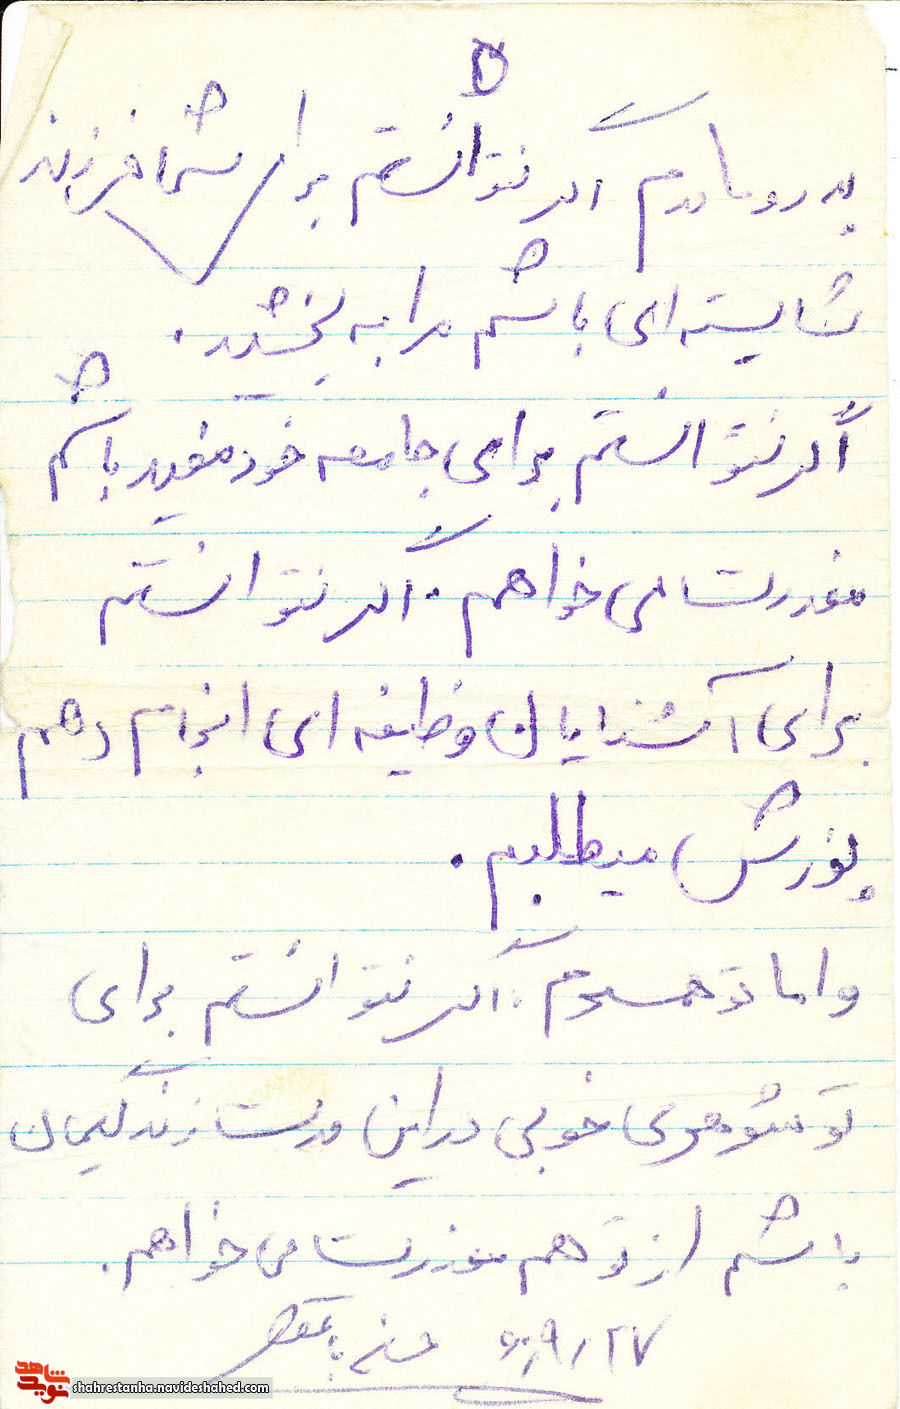 ۵
پدر و مادرم اگر نتوانستم برای شما فرزند
شایسته ای باشم مرا به بخشید.
اگر نتوانستم برای جامعه خود مفید باشم
معذرت می خواهم. اگر نتوانستم
برای آشنایان وظیفه ای انجام دهم
پوزش میطلبم.
و اما تو همسرم، اگر نتوانستم برای
تو شوهری خوبی در این مدت زندگیمان
باشم از تو هم معذرت می خواهم.
۶۰/۹/۲۷
نوید شاهد
shahrestanha.navideshahed.com